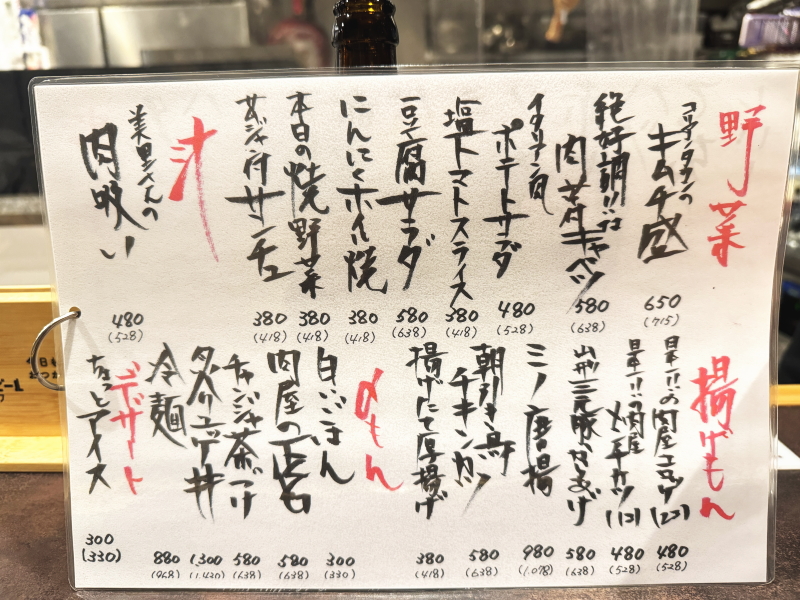 野菜
コリアンタウンの
キムチ盛
650
(715)
絶好調!!な
キャベツ
580
(638)
イタリアン風
ポテトサラダ
480
(528)
塩トマトスライス
380
(418)
豆腐サラダ
580
(638)
にんにくホイル焼
380
(418)
本日の焼野菜
380
(418)
付サンチュ
380
(418)
汁
美里さんの
肉吸い
480
(528)
揚げもん
日本一!!の肉屋コロッケ(2コ)
480
(528)
日本一!!の肉屋
メンチカツ(1コ)
480
(528)
山形三元豚からあげ
580
(638)
ミノ唐揚
980
(1.078)
朝引き鳥
チキンカツ
580
(638)
揚げたて厚揚げ
380
(418)
〆もん
白いごはん
300
(330)
肉屋の
580
(638)
チャンジャ茶づけ
580
(638)
炙りユッケ丼
1,300
(1.430)
冷麺
880
(968)
デザート
ちょっとアイス
300
(330)